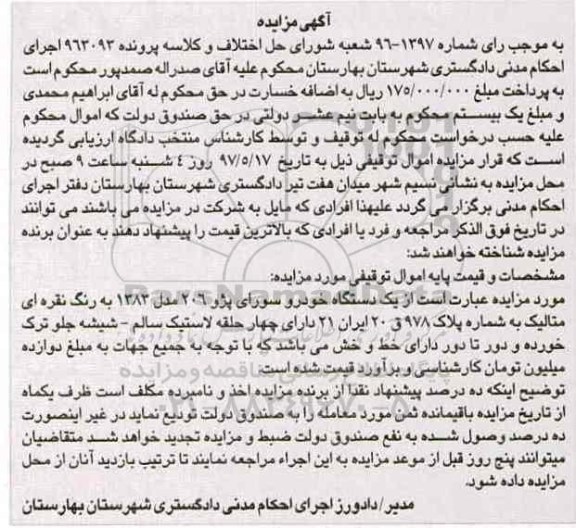 آگهی مزایده
به موجب رای شماره ۱۳۹۷-۹۶ شعبه شورای حل اختلاف و کلاسه پرونده ۹۶۳۰۹۳ اجرای
احکام مدنی دادگستری شهرستان بهارستان محکوم علیه آقای صدراله صمدپور محکوم است
به پرداخت مبلغ ۱۷۵/۰۰۰/۰۰۰ ریال به اضافه خسارت در حق محکوم له آقای ابراهیم محمدی
و مبلغ یک بیستم محکوم به بابت نیم عشر دولتی در حق صندوق دولت که اموال محکوم
علیه حسب درخواست محکوم له توقیف و توسط کارشناس منتخب دادگاه ارزیابی گردیده
است که قرار مزایده اموال توقیفی ذیل به تاریخ ۹۷/۵/۱۷ روز ٤ شنبه ساعت ۹ صبح در
محل مزایده به نشانی نسیم شهر میدان هفت تیر دادگستری شهرستان بهارستان دفتر اجرای
احکام مدنی برگزار می گردد علیهذا افرادی که مایل به شرکت در مزایده می باشند می توانند
در تاریخ فوق الذکر مراجعه و فرد یا افرادی که بالاترین قیمت را پیشنهاد دهند به عنوان برنده
مزایده شناخته خواهند شد:
مشخصات و قیمت پایه اموال توقیفی مورد مزایده:
مورد مزایده عبارت است از یک دستگاه خودرو سورای پژو ۲۰٦ مدل ۱۳۸۳ به رنگ نقره ای
متالیک به شماره پلاک ۹۷۸ ق ۲۰ ایران ۲۱ دارای چهار حلقه لاستیک سالم - شیشه جلو ترک
خورده و دور تا دور دارای خط و خش می باشد که با توجه به جمیع جهات به مبلغ دوازده
میلیون تومان کارشناسی و برآورد قیمت شده است
توضیح اینکه ده درصد پیشنهاد نقداً از برنده مزایده اخذ و نامبرده مکلف است ظرف یکماه
از تاریخ مزایده باقیمانده ثمن مورد معامله را به صندوق دولت تودیع نماید در غیر اینصورت
ده درصد وصول شده به نفع صندوق دولت ضبط و مزایده تجدید خواهد شد متقاضیان
میتوانند پنج روز قبل از موعد مزایده به این اجراء مراجعه نمایند تا ترتیب بازدید آنان از محل
مزایده داده شود.
مدیر/ دادورز اجرای احکام مدنی دادگستری شهرستان بهارستان